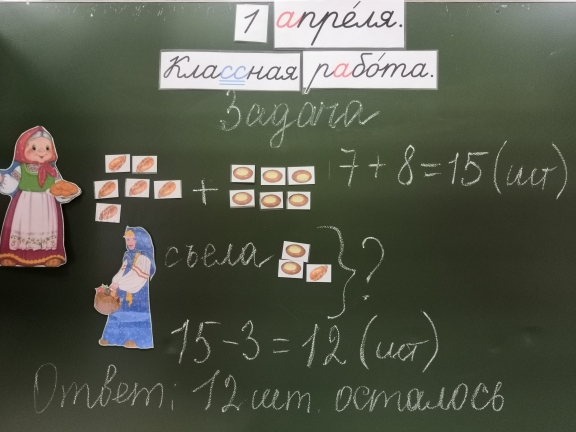 1 апре́ля.
Классная рабо́та.
Задача
+ 7 + 8 = 15 (шт)
съела } ?
15 - 3 = 12 (шт)
Ответ: 12 шт. осталось